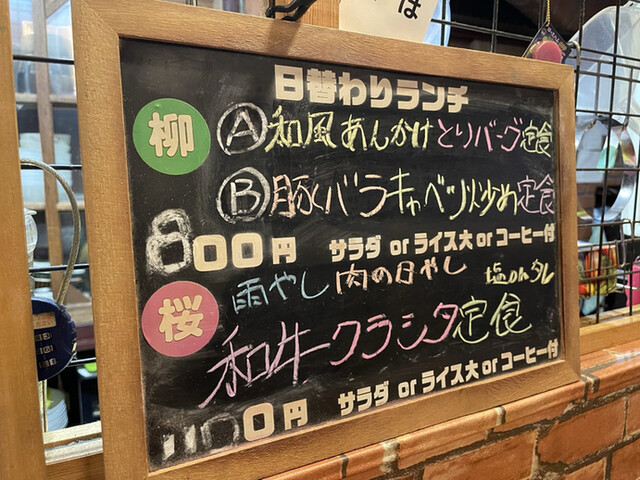 は
日替わりランチ
柳 Ⓐ和風あんかけとりバーグ定食
Ⓑ豚バラキャベツ炒め定食
800円 サラダ or ライス大 or コーヒー付
雨やし 肉の日やし 塩orタレ
桜 和牛クラシタ定食
1100円 サラダ or ライス大 or コーヒー付